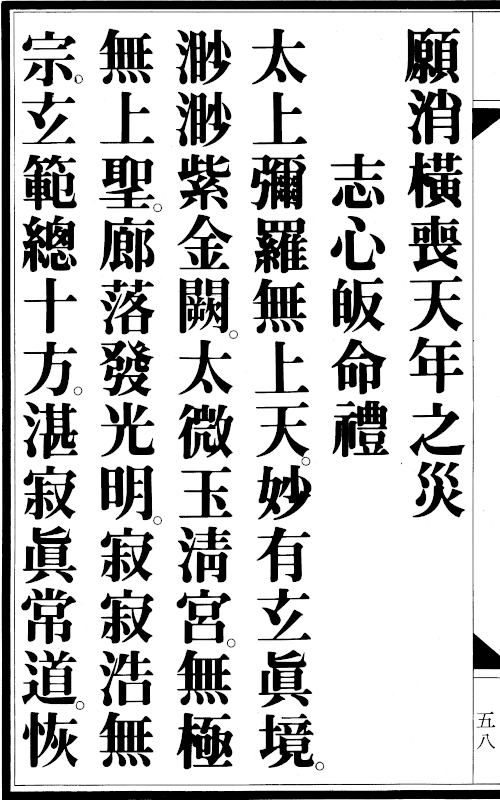 願消橫喪天年之災
志心皈命禮
太上彌羅無上天。妙有玄眞境。
渺渺紫金闕。太微玉淸宮。無極
無上聖。廊落發光明。寂寂浩無
宗。玄範總十方。湛寂眞常道。恢
五八